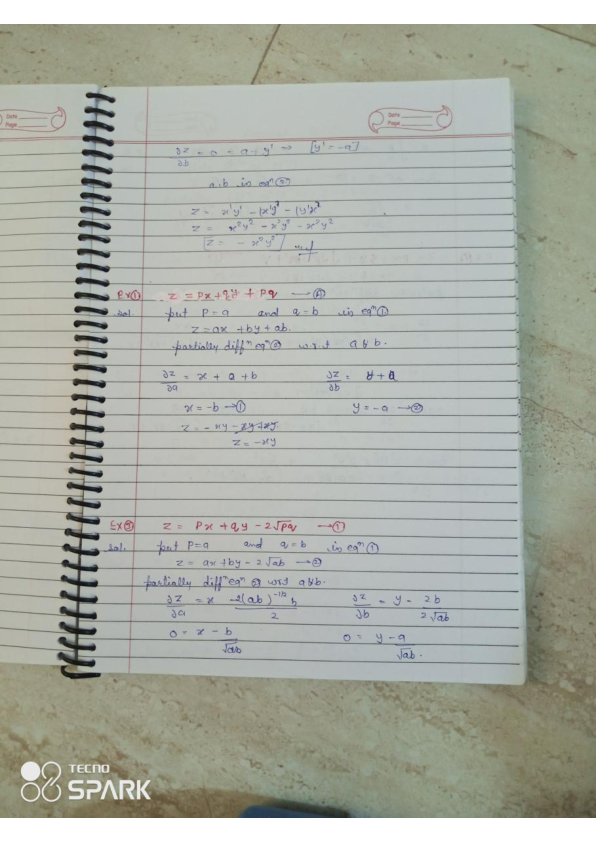 Date
Page
Date
Page
∂z/∂b = 0 = a + y' ⇒ [y' = -a]
a,b in eqⁿ ②
z = x'y' - (x'y' - (y')x'
z = x²y² - x²y² - x²y²
z = - x²y²
Ex ① z = px + qy + pq —Ⓐ
Sol. put P = a and q = b in eqⁿ ①
z = ax + by + ab.
partially diffⁿ eqⁿ ② w.r.t a & b.
∂z/∂a = x + 0 + b ∂z/∂b = y + a
x = -b → ① y = -a → ②
z = -xy - xy + xy
z = -xy
Ex ② z = Px + qy - 2√pq → ①
Sol. put P = a and q = b in eqⁿ ①
z = ax + by - 2√ab → ②
partially diffⁿ eqⁿ ② w.r.t a & b.
∂z/∂a = x - 2(ab)^(-1/2) b / 2 ∂z/∂b = y - 2b / 2√ab
0 = x - b/√ab 0 = y - a/√ab.
TECNO
SPARK